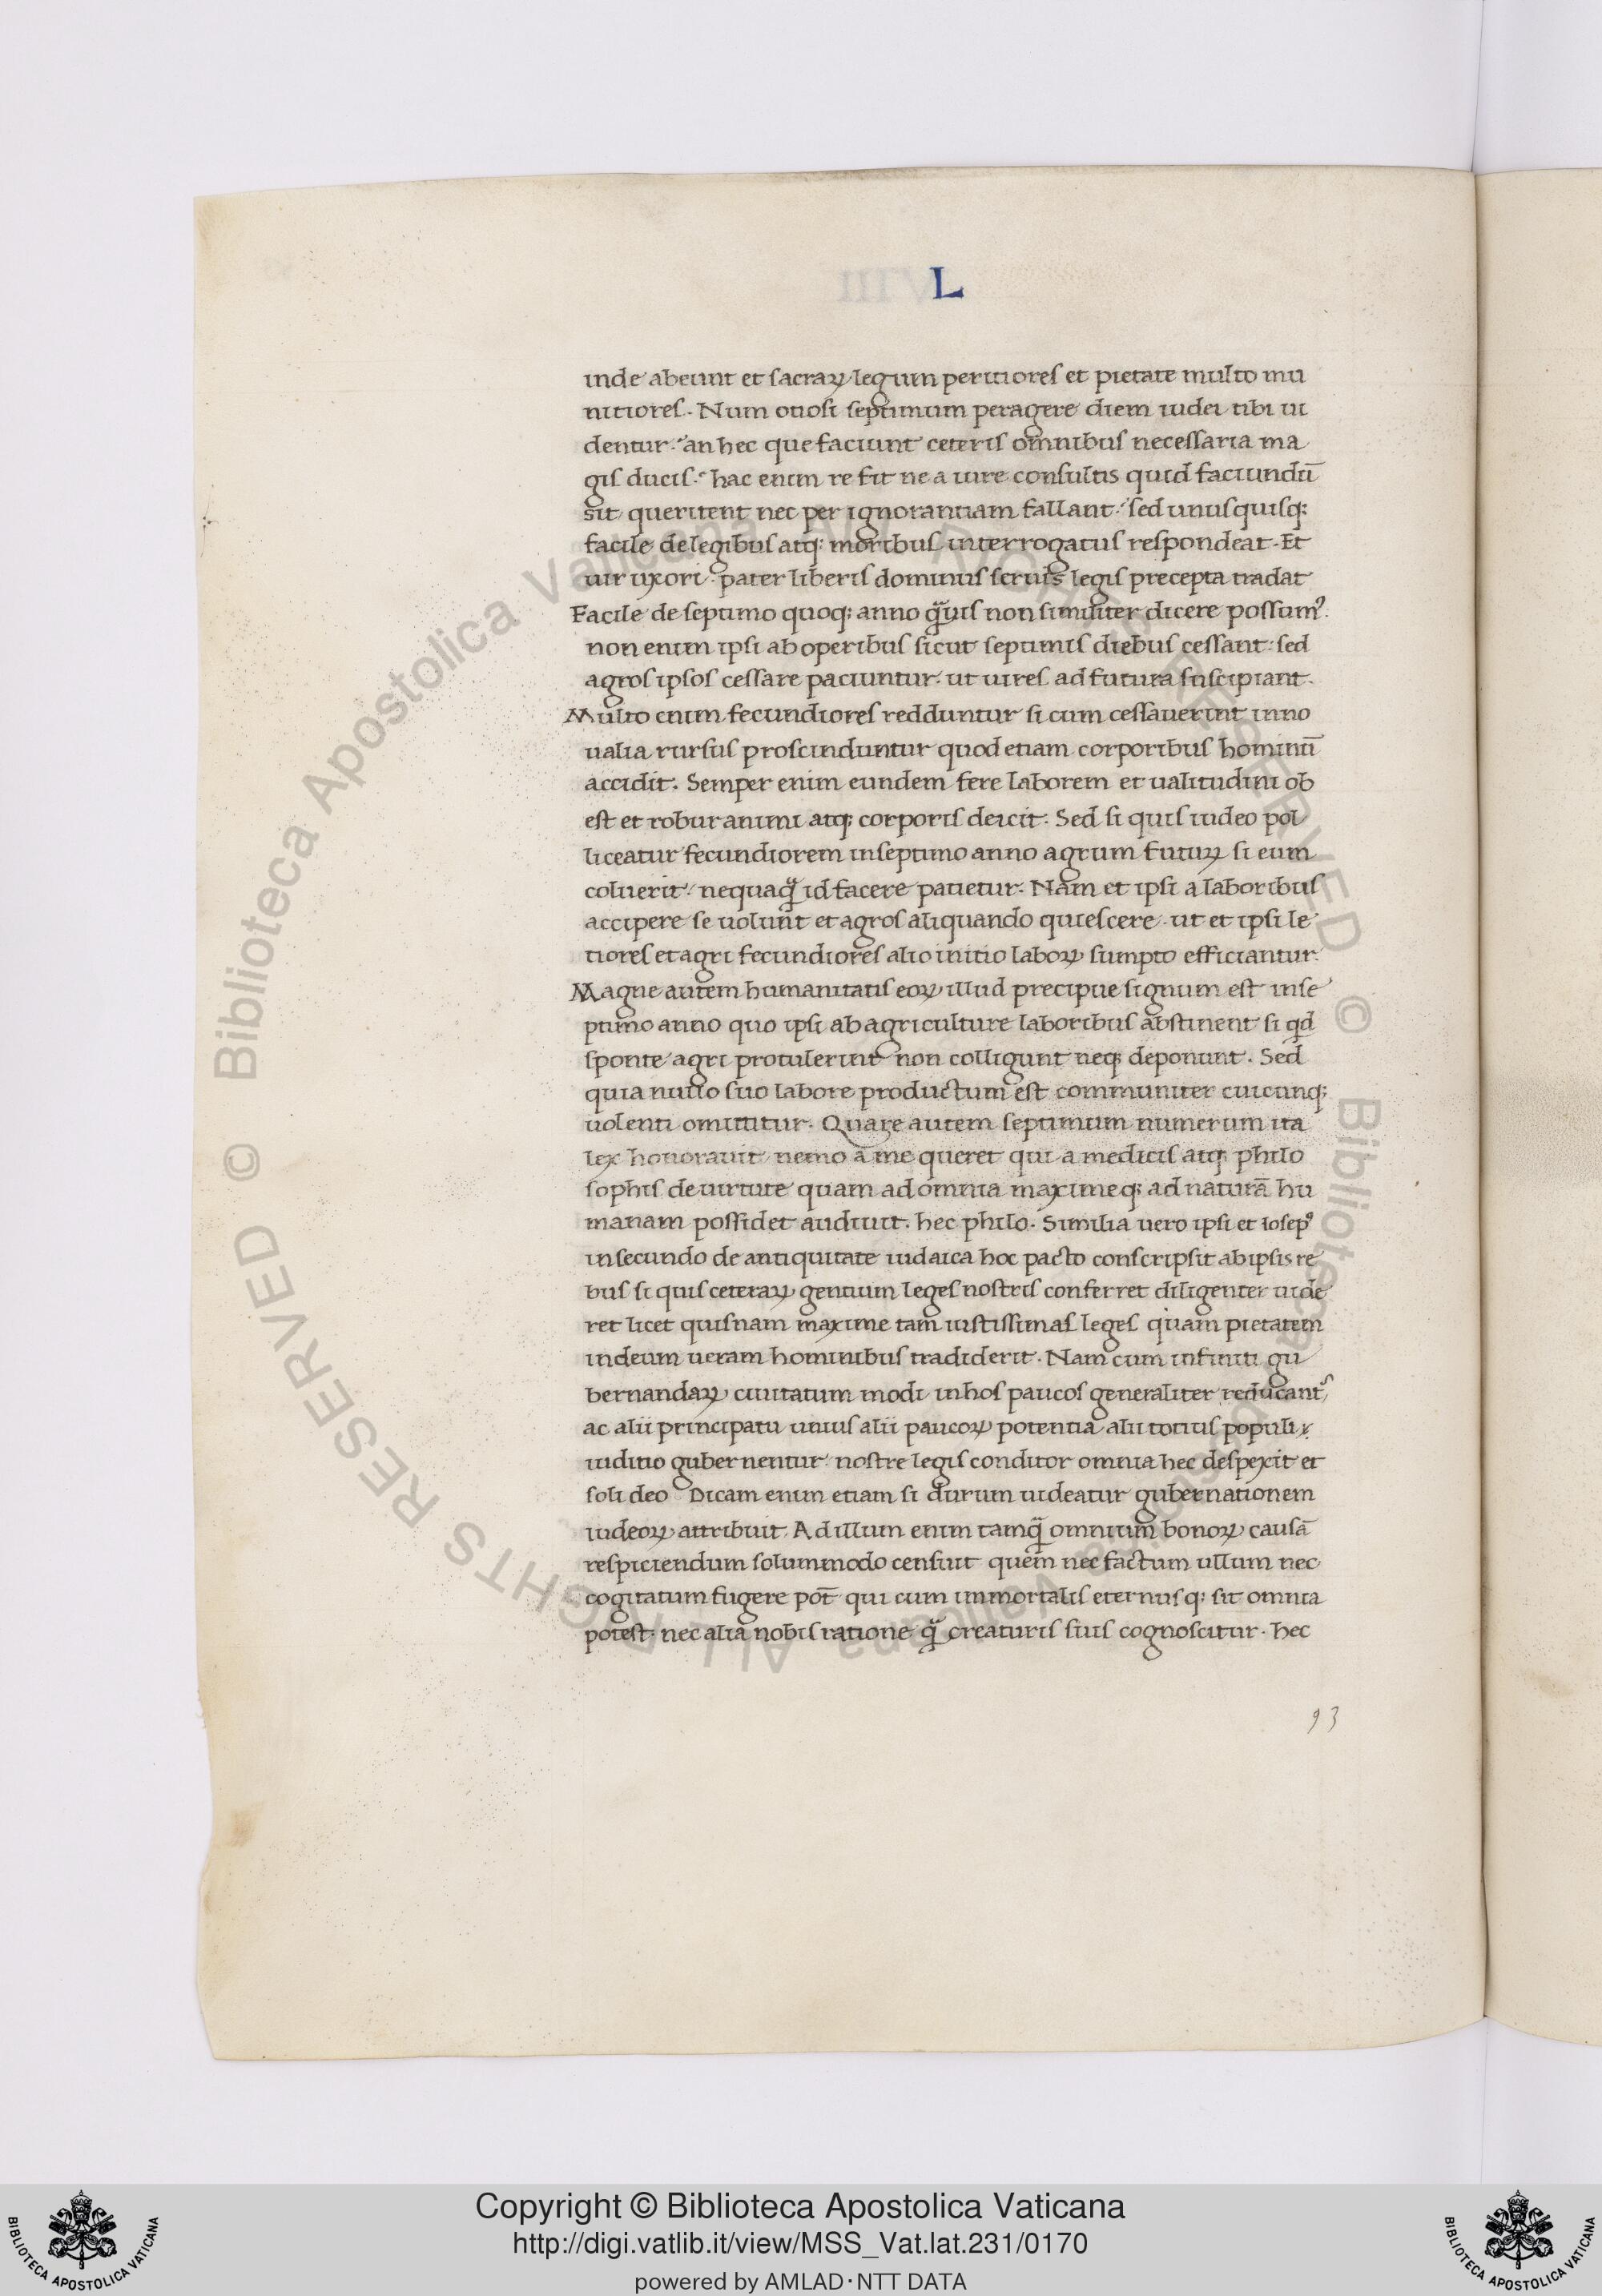 L
inde abeunt et sacraꝝ legum peritiores et pietate multo mu
nitiores. Num otiosi septimum peragere diem iudei tibi ui
dentur. an hec que faciunt ceteris omnibus necessaria ma
gis ducis. hac enim re fit ne a iure consultis quid faciundū
sit queritent nec per ignorantiam fallant. sed unusquisq;
facile de legibus atq; moribus interrogatus respondeat. Et
uir uxori. pater liberis dominus seruis legis precepta tradat
Facile de septimo quoq; anno q̃uis non similiter dicere possumꝰ.
non enim ipsi ab operibus sicut septimis diebus cessant: sed
agros ipsos cessare paciuntur. ut uires ad futura suscipiant.
Multo enim fecundiores redduntur si cum cessauerint in no
ualia rursus proscinduntur quod etiam corporibus hominū
accidit. Semper enim eundem fere laborem et ualitudini ob
est et robur animi atq; corporis deicit. Sed si quis iudeo pol
liceatur fecundiorem in septimo anno agrum futuꝝ si eum
coluerit. nequaq̃ id facere patietur. Nam et ipsi a laboribus
accipere se uolunt et agros aliquando quiescere. ut et ipsi le
tiores et agri fecundiores alio initio laboꝝ sumpto efficiantur.
Magne autem humanitatis eoꝝ illud precipue signum est in se
ptimo anno quo ipsi ab agriculture laboribus abstinent si qd
sponte agri protulerint non colligunt neq; deponunt. Sed
quia nullo suo labore productum est communiter cuicunq;
uolenti omittitur. Quare autem septimum numerum ita
lex honorauit nemo a me queret qui a medicis atq; philo
sophis de uirtute quam ad omnia maximeq; ad naturā hu
manam possidet audiuit. hec philo. Similia uero ipsi et Iosepꝰ
in secundo de antiquitate iudaica hoc pacto conscripsit ab ipsis re
bus si quis ceteraꝝ gentium leges nostris conferret diligenter uide
ret licet quisnam maxime tam iustissimas leges quam pietatem
in deum ueram hominibus tradiderit. Nam cum infiniti gu
bernandaꝝ ciuitatum modi in hos paucos generaliter reducantᷣ
ac alii principatu unius alii paucoꝝ potentia alii totius populi
iuditio gubernentur. nostre legis conditor omnia hec despexit et
soli deo Dicam enim etiam si durum uideatur gubernationem
iudeoꝝ attribuit. Ad illum enim tamq̃ omnium bonoꝝ causā
respiciendum solummodo censuit quem nec factum ullum nec
cogitatum fugere pot̄ qui cum immortalis eternusq; sit omnia
potest. nec alia nobis ratione q̃ creaturis suis cognoscitur. hec
93
© Biblioteca Apostolica Vaticana ALL RIGHTS RESERVED
Copyright © Biblioteca Apostolica Vaticana
http://digi.vatlib.it/view/MSS_Vat.lat.231/0170
powered by AMLAD·NTT DATA
BIBLIOTECA APOSTOLICA VATICANA
BIBLIOTECA APOSTOLICA VATICANA